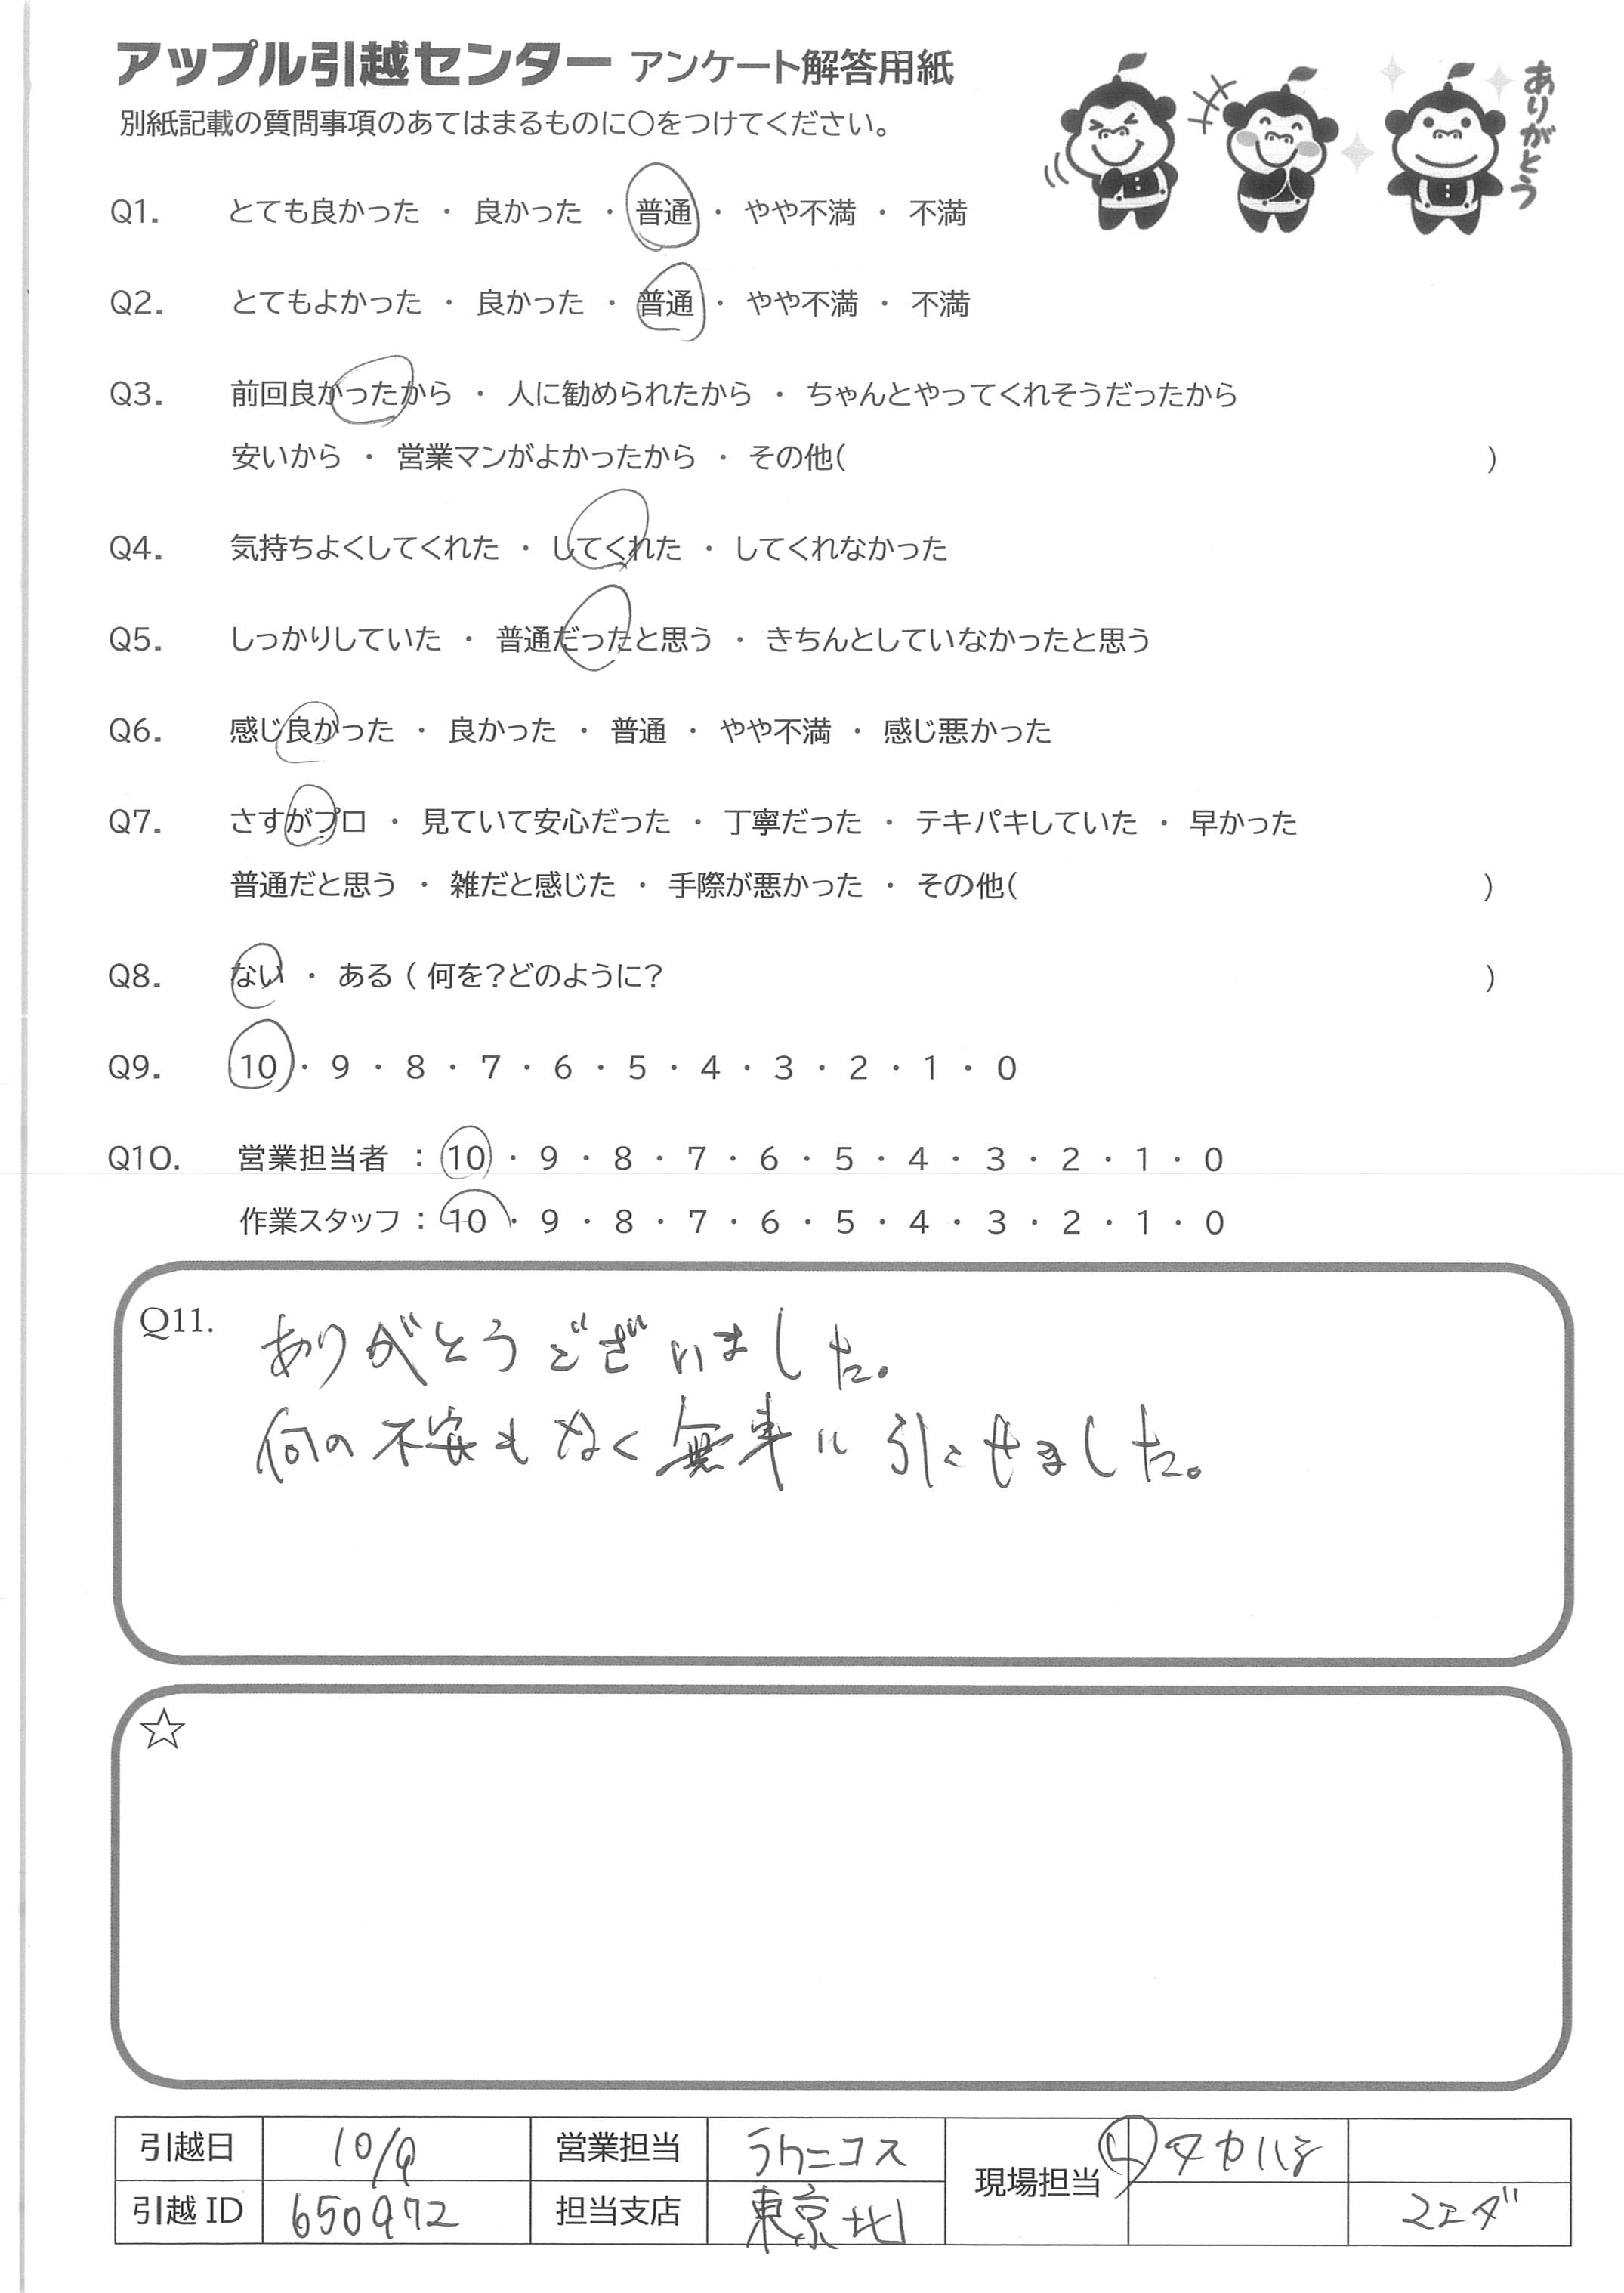 アップル引越センター アンケート解答用紙
別紙記載の質問事項のあてはまるものに○をつけてください。
ありがとう
Q1. とても良かった ・ 良かった ・ 普通 ・ やや不満 ・ 不満
Q2. とてもよかった ・ 良かった ・ 普通 ・ やや不満 ・ 不満
Q3. 前回良かったから ・ 人に勧められたから ・ ちゃんとやってくれそうだったから
安いから ・ 営業マンがよかったから ・ その他( )
Q4. 気持ちよくしてくれた ・ してくれた ・ してくれなかった
Q5. しっかりしていた ・ 普通だったと思う ・ きちんとしていなかったと思う
Q6. 感じ良かった ・ 良かった ・ 普通 ・ やや不満 ・ 感じ悪かった
Q7. さすがプロ ・ 見ていて安心だった ・ 丁寧だった ・ テキパキしていた ・ 早かった
普通だと思う ・ 雑だと感じた ・ 手際が悪かった ・ その他( )
Q8. ない ・ ある ( 何を?どのように? )
Q9. 10 ・ 9 ・ 8 ・ 7 ・ 6 ・ 5 ・ 4 ・ 3 ・ 2 ・ 1 ・ 0
Q10. 営業担当者 : 10 ・ 9 ・ 8 ・ 7 ・ 6 ・ 5 ・ 4 ・ 3 ・ 2 ・ 1 ・ 0
作業スタッフ : 10 ・ 9 ・ 8 ・ 7 ・ 6 ・ 5 ・ 4 ・ 3 ・ 2 ・ 1 ・ 0
Q11. ありがとうございました。
何の不安もなく無事に引こせました。
☆
引越日 10/9 営業担当 現場担当 タカハシ
引越 ID 650972 担当支店 東京北 マエダ